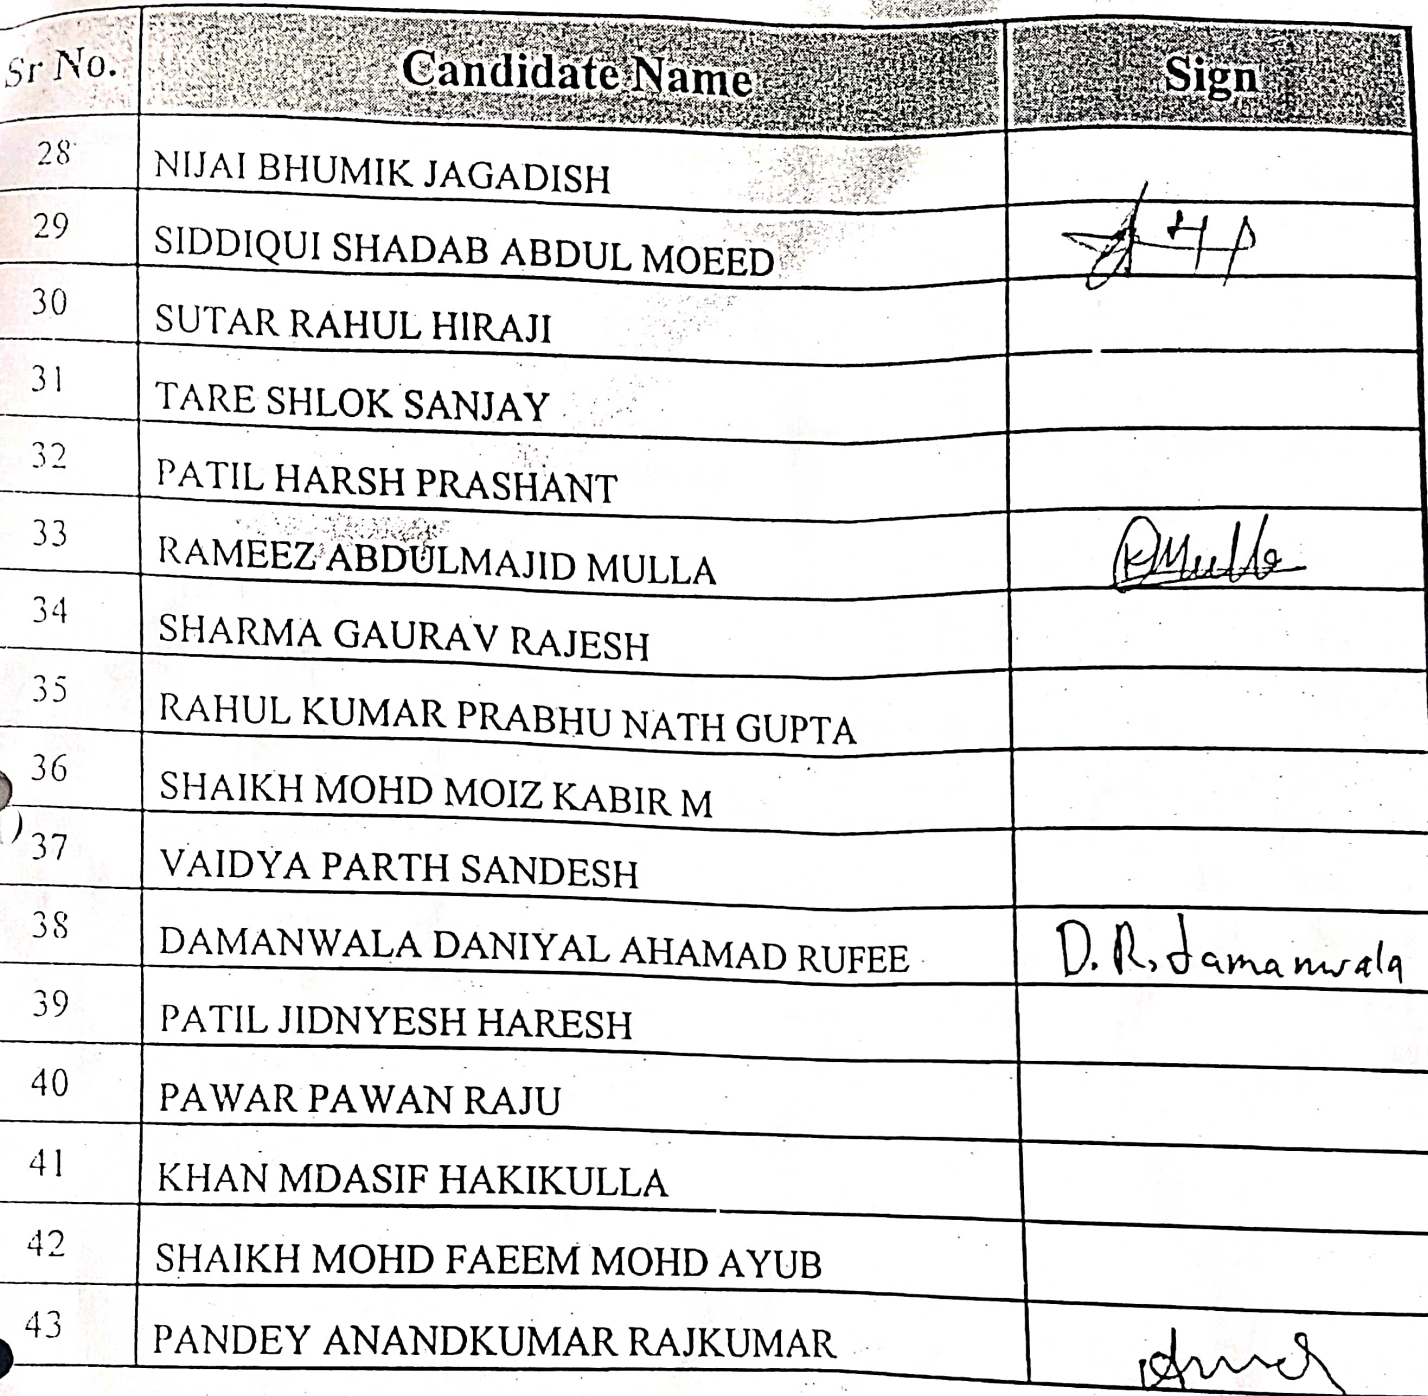 Sr No. Candidate Name Sign
28 NIJAI BHUMIK JAGADISH
29 SIDDIQUI SHADAB ABDUL MOEED
30 SUTAR RAHUL HIRAJI
31 TARE SHLOK SANJAY
32 PATIL HARSH PRASHANT
33 RAMEEZ ABDULMAJID MULLA RMulla
34 SHARMA GAURAV RAJESH
35 RAHUL KUMAR PRABHU NATH GUPTA
36 SHAIKH MOHD MOIZ KABIR M
37 VAIDYA PARTH SANDESH
38 DAMANWALA DANIYAL AHAMAD RUFEE D. R. damanwala
39 PATIL JIDNYESH HARESH
40 PAWAR PAWAN RAJU
41 KHAN MDASIF HAKIKULLA
42 SHAIKH MOHD FAEEM MOHD AYUB
43 PANDEY ANANDKUMAR RAJKUMAR